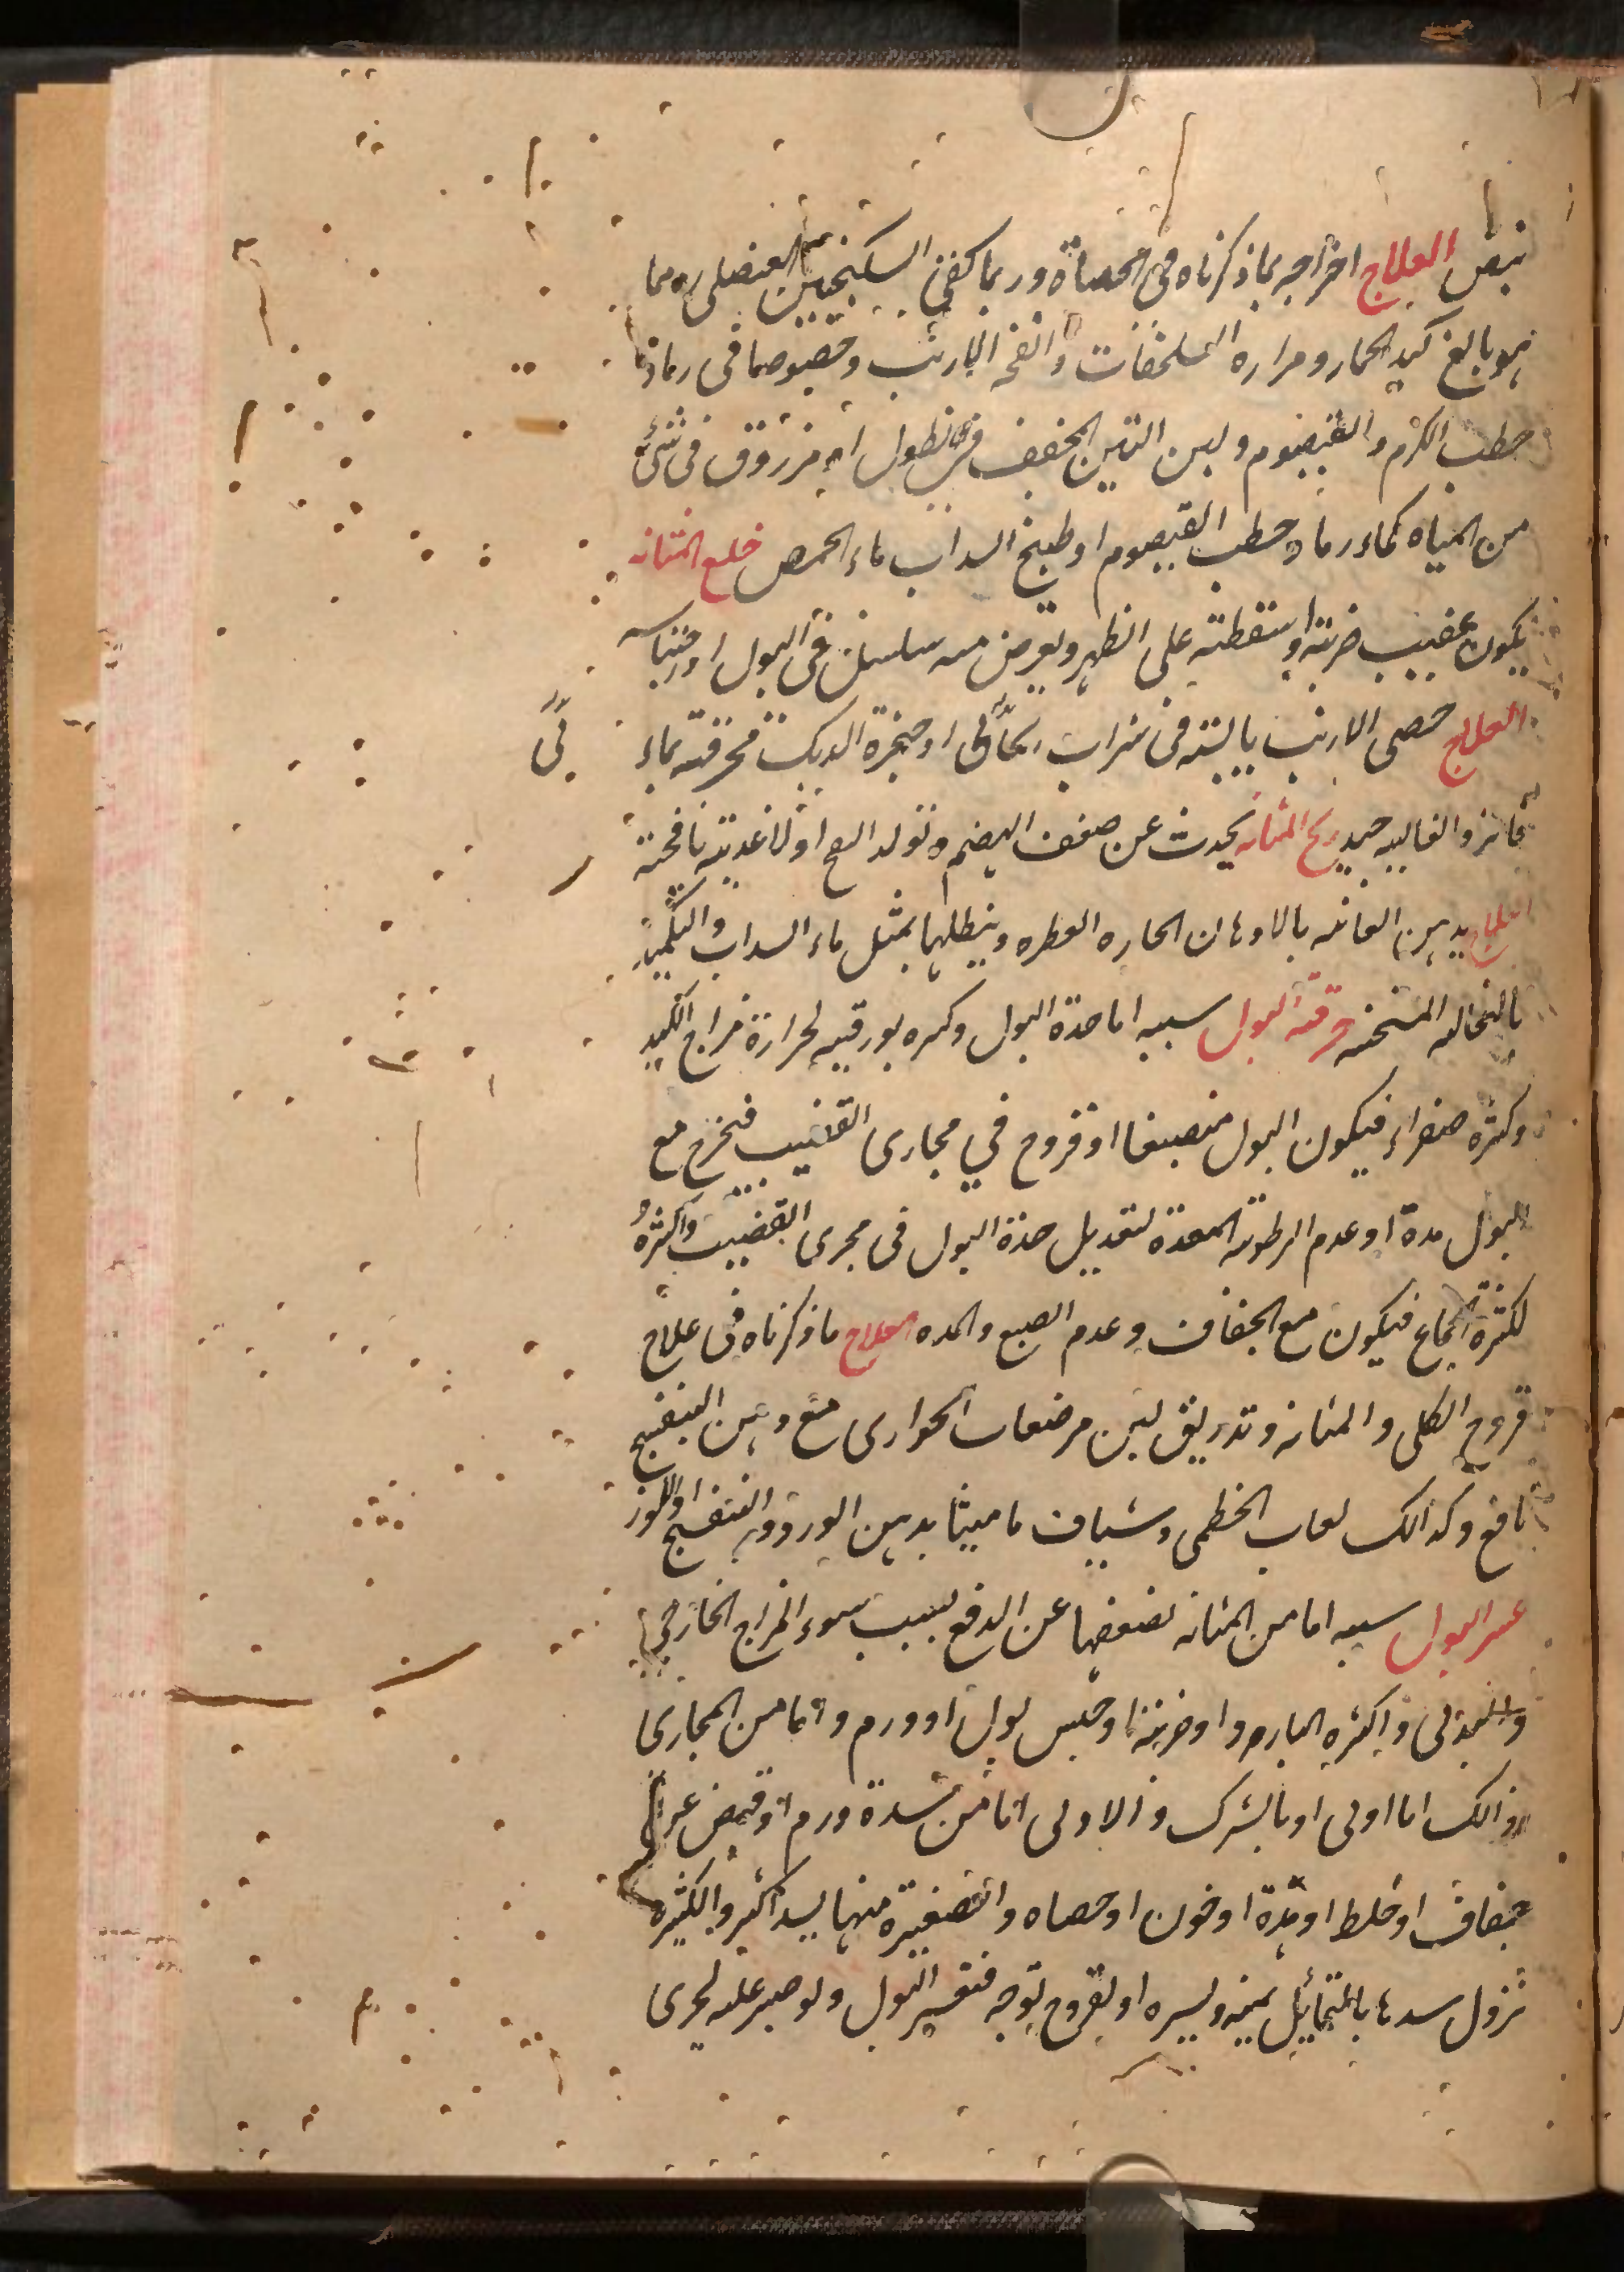 نبض العلاج اخراجه بما ذكرناه فى الحصاة وربما كفى السكنجبين العنصلى ومما
هو بالغ كبد الحمار ومراره السلحفات وانفحة الارنب وخصوصا فى رماد
حطب الكرم والقيصوم ولبن التين المجفف نطول او مزروق فى شئ
من المياه كماء رماد حطب القيصوم او طبيخ السداب ماء الحمص خلع المثانه
يكون عقيب ضربته او سقطته على الظهر ويعرض منه سلس فى البول او احتباسه
العلاج خصى الارنب يابسته فى شراب ريحانى او حنجرة الديك محرقته بماء
فاتر والغاليه جيد ريح المثانه يحدث عن ضعف الهضم وتولد او لاغديته نافخته
العلاج يدهن العانه بالادهان الحاره العطره وينطلها بمثل ماء السداب والتكميد
بالنخاله المسخنه حرقته البول سببه اما حدة البول وكثره بورقيه لحرارة مزاج الكبد
وكثره صفراء فيكون البول منصبغا او قروح في مجارى القضيب فيخرج مع
البول مدة او عدم الرطوبته المعدة لتعديل حدة البول فى مجرى القضيب واكثره
لكثرة الجماع فيكون مع الجفاف وعدم الصبع والمده العلاج ما ذكرناه فى علاج
قروح الكلى والمثانه وتزريق لبن مرضعات الجوارى مع دهن البنفسج
نافع وكذالك لعاب الخطمى وشياف ماميثا بدهن الورد والبنفسج او اللوز
عسر البول سببه اما من المثانه لضعفها عن الدفع بسبب سوء المزاج الخارجى
والبدنى واكثره البارد او ضربته او حبس بول او ورم واما من المجارى
وذالك اما اولى او بالشرك والاولى اما من سدة ورم او قبض عن
جفاف او خلط او مدة او خون او حصاه والصغيرة منها يسد اكثر والكثيره
نزول سدها بالتمائيل يمنه ويسره او لقروح توجه فتعسر البول ولو صبر عله لجرى